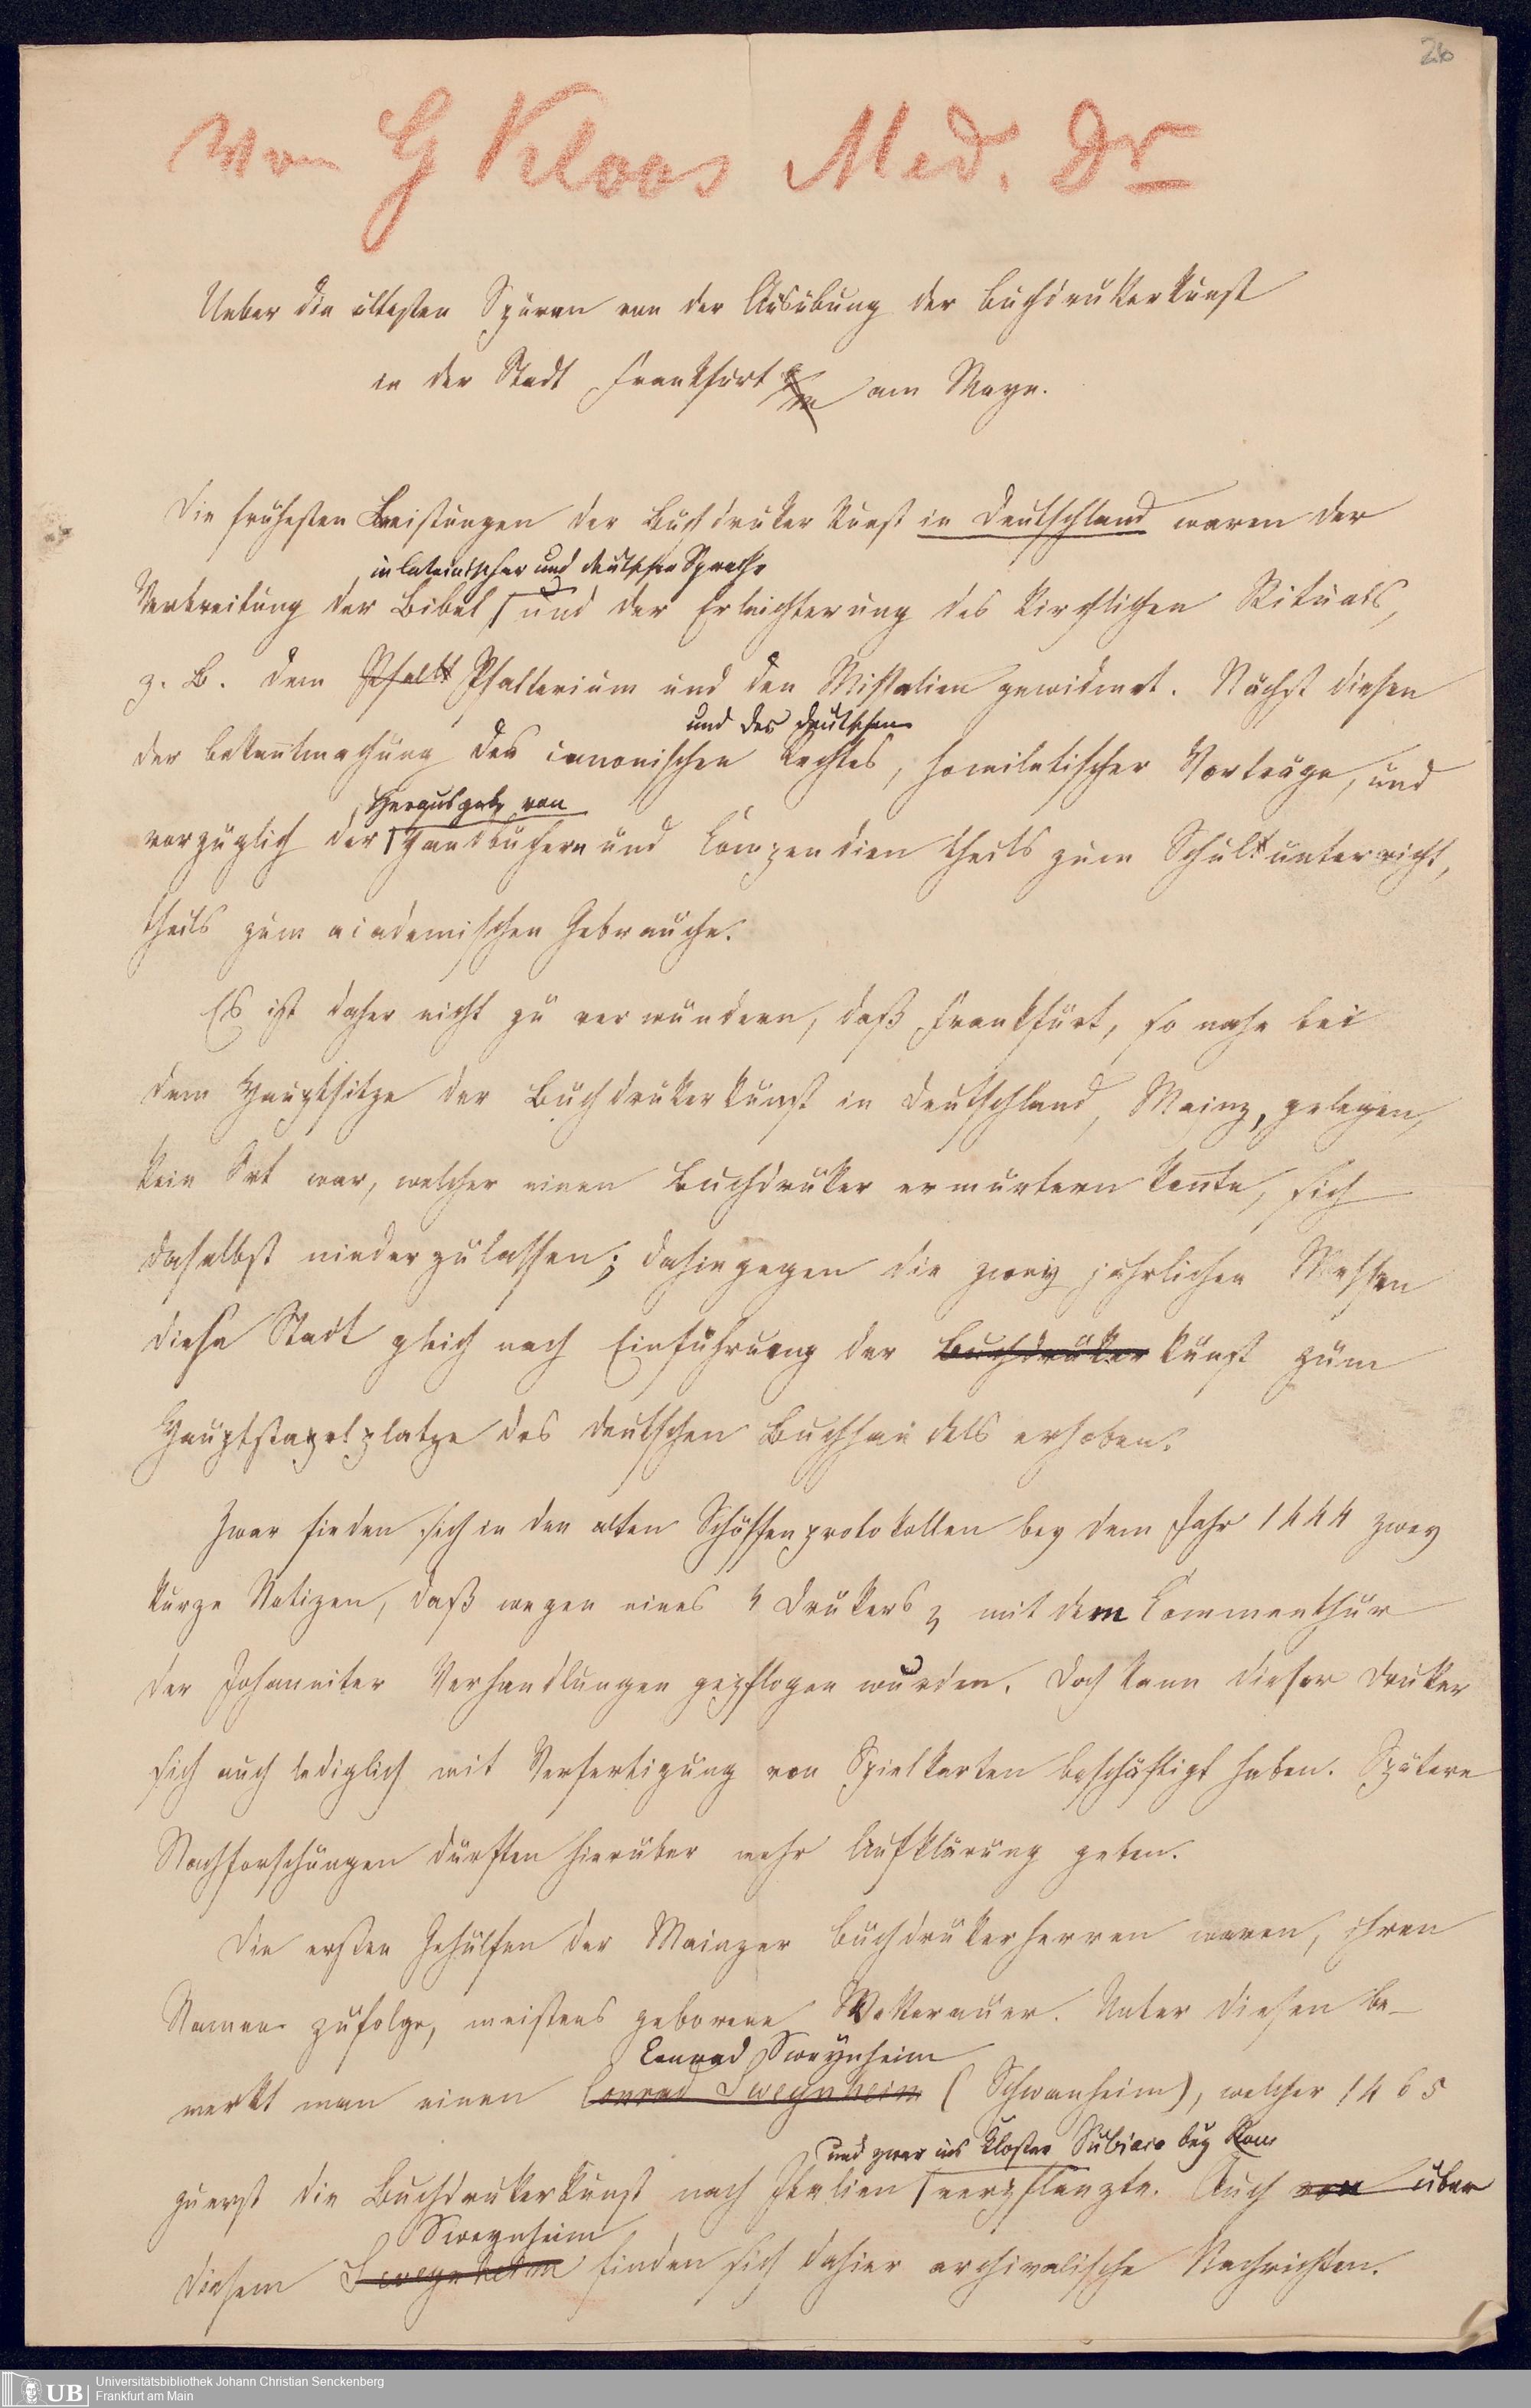 26
Von G Kloos Med. Dr
Ueber die ältesten Spuren von der Ausübung der Buchdrukerkunst
in der Stadt Frankfurt am Mayn.
Die frühesten Leistungen der Buchdruker Kunst in Deutschland waren der
in lateinischer und deutscher Sprache
Verbreitung der Bibel und der Erleichterung des kirchlichen Rituals,
z. B. dem Psalt Psalterium und den Missalien gewidmet. Nächst diesen
und des deutschen
der Bekantmachung des canonischen Rechtes, homiletischer Vorträge, und
Herausgabe von
vorzüglich der Handbüchern und Compendien theils zum Schulunterricht,
theils zum academischen Gebrauche.
Es ist daher nicht zu verwundern, daß Frankfurt, so nahe bei
dem Hauptsitze der Buchdrukerkunst in Deutschland, Mainz, gelegen,
kein Ort war, welcher einen Buchdruker ermuntern konte, sich
daselbst niederzulassen; dahingegen die zwey jährlichen Messen
diese Stadt gleich nach Einführung der Buchdruker kunst zum
Hauptstapelplatze des deutschen Buchhandels erhoben.
Zwar finden sich in den alten Schöffenprotokollen bey dem Jahr 1444 zwey
kurze Notizen, daß wegen eines "Drukers" mit dem Commenthur
der Johanniter Verhandlungen gepflogen wurden. Doch kann dieser Druker
sich auch lediglich mit Verfertigung von Spielkarten beschäftigt haben. Spätere
Nachforschungen dürften hierüber mehr Aufklärung geben.
Die ersten Gehülfen der Mainzer Buchdrukerherren waren, ihren
Namen zufolge, meistens geborene Wetterauer. Unter diesen be-
Conrad Sweynheim
merkt man einen Conrad Sweynheim (Schwanheim), welcher 1465
und zwar ins Kloster Subiaco bey Rom
zuerst die Buchdrukerkunst nach Italien verpflanzte. Auch von über
Sweynheim
diesem Sweynheim finden sich dahier archivalische Nachrichten.
UB
Universitätsbibliothek Johann Christian Senckenberg
Frankfurt am Main